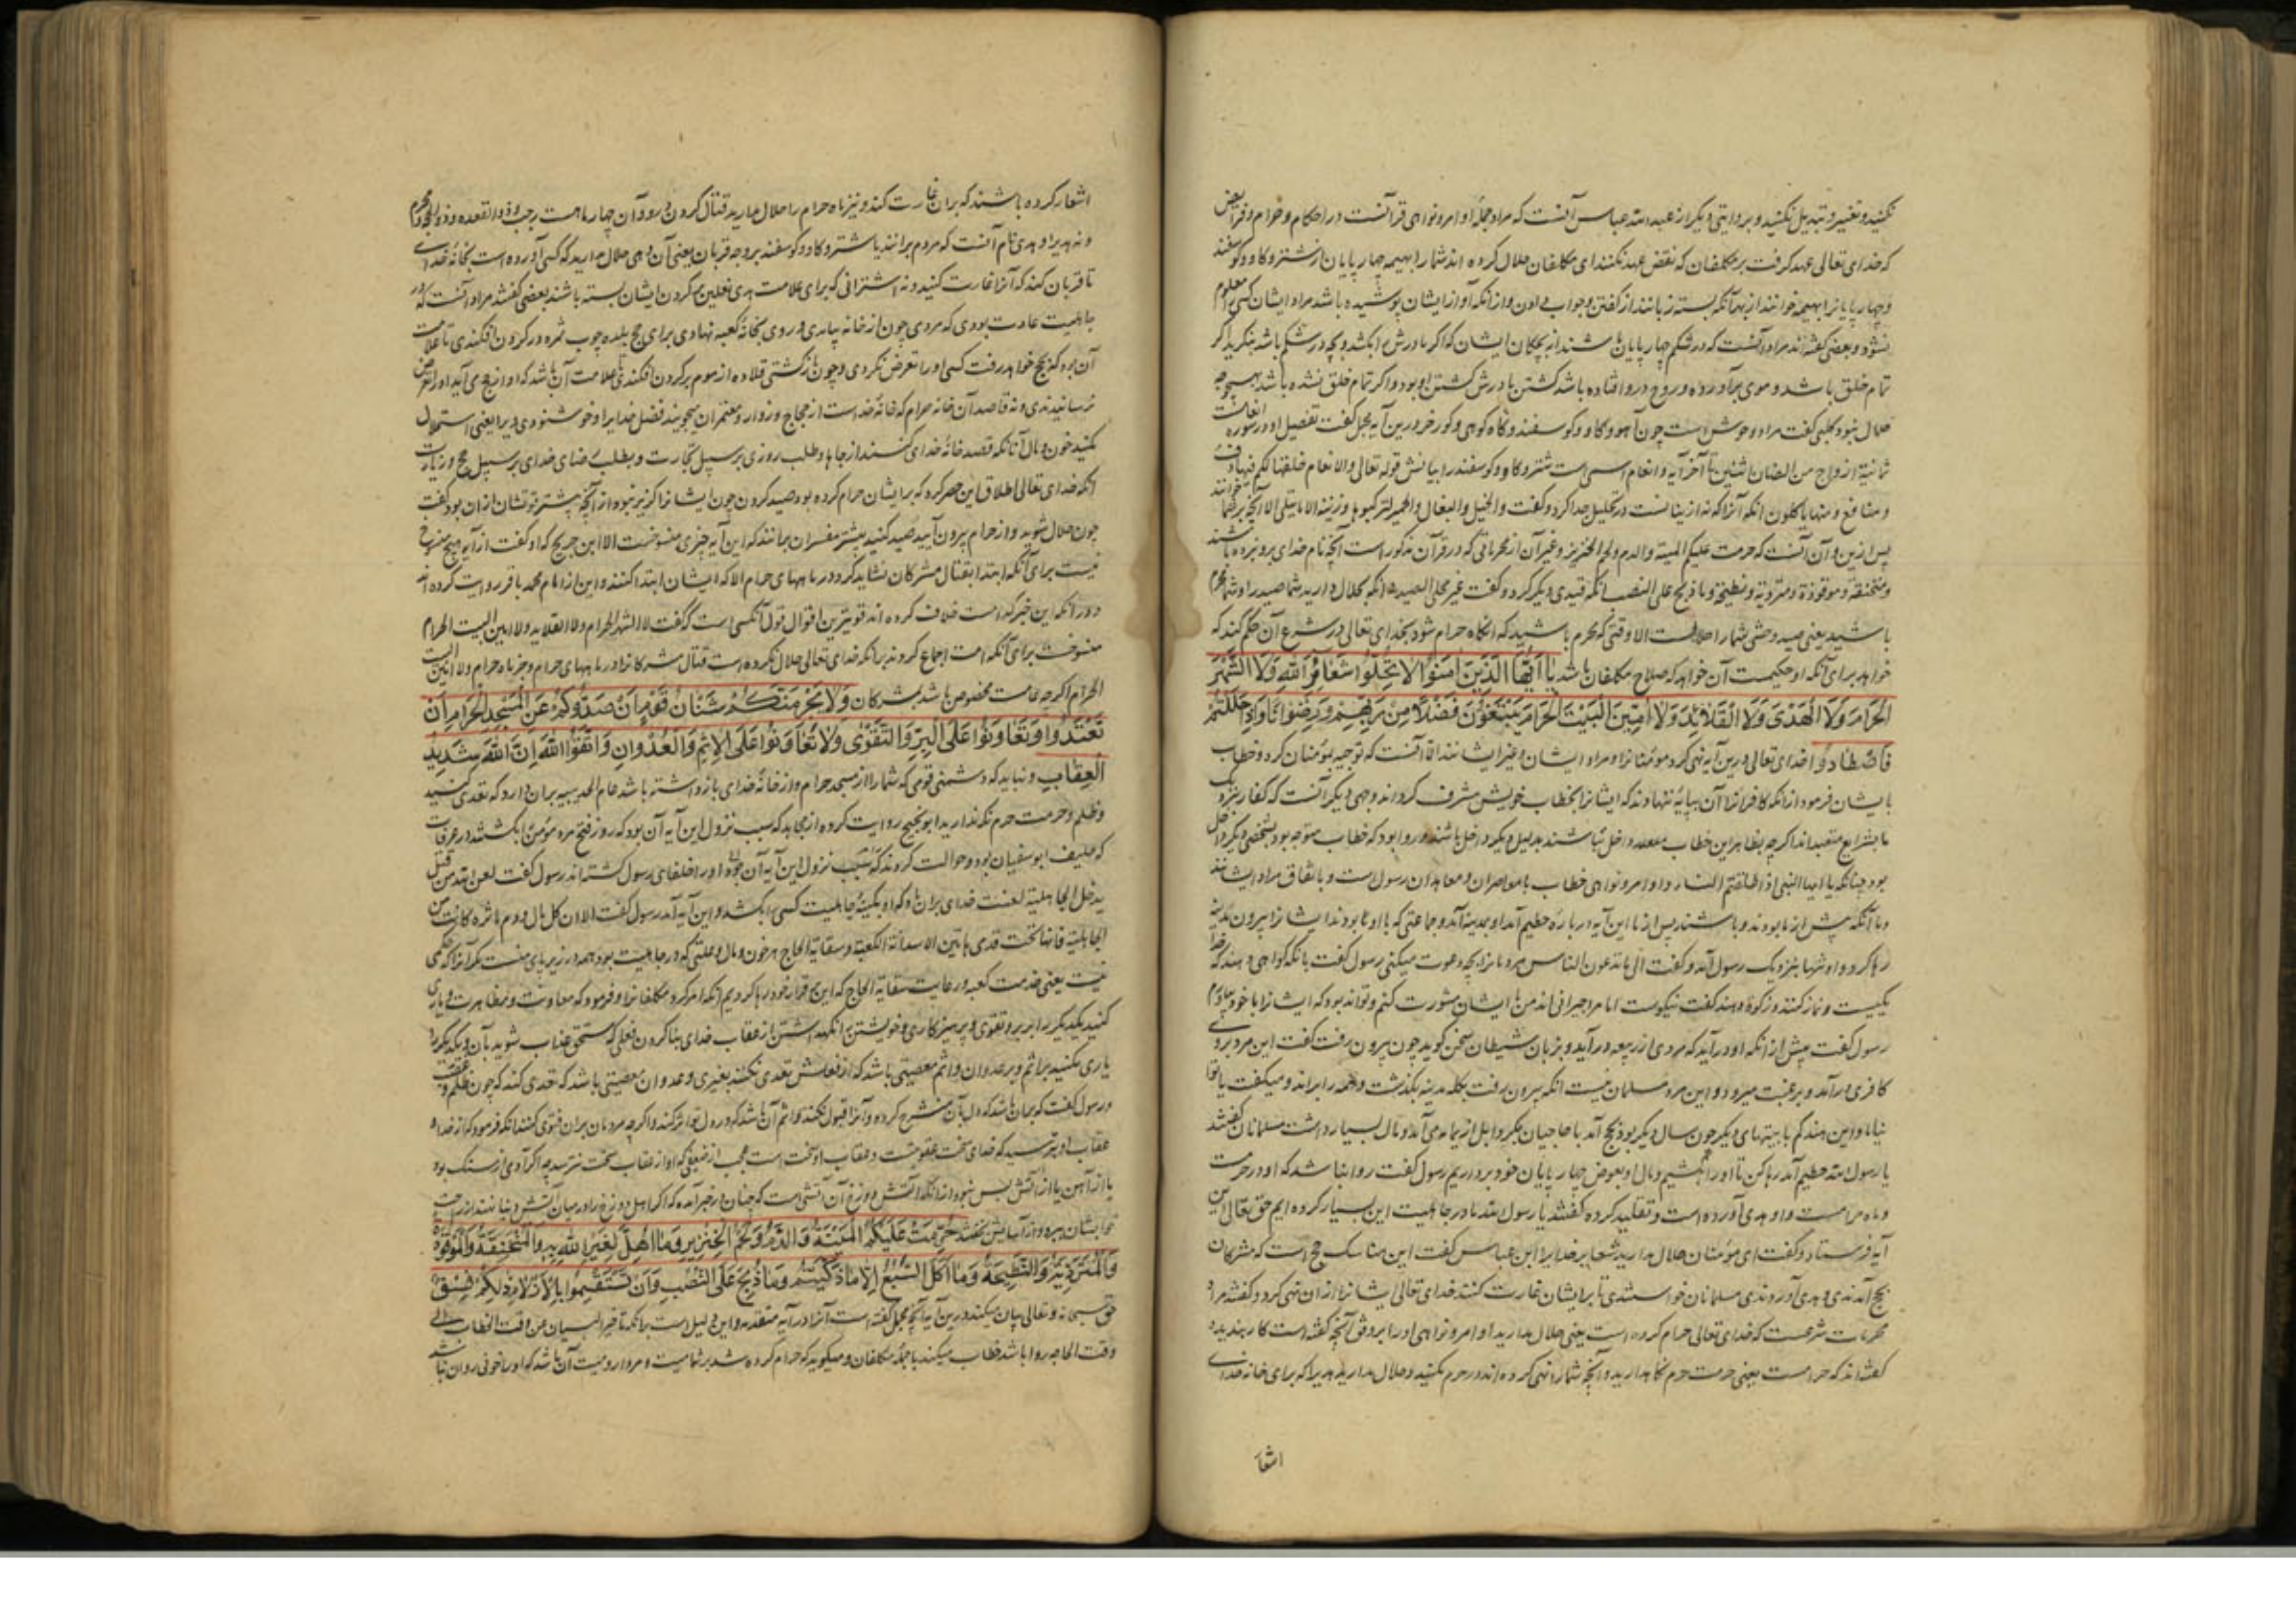 نکنید و تغییر و تبدیل نکنید و بروایتی دیگر از عبد الله عباس آنست که مراد جملهٔ اوامر و نواهی قرآنست در احکام و حرام و فرائض
که خدای تعالی عهد گرفت بر مکلفان که نقض عهد نکنند ای مکلفان حلال کرده اند شما را بهیمه چهار پایان از شتر و کاو و کوسفند
و چهار پایانرا بهیمه خوانند از بهر آنکه بسته زبانند از گفتن و جواب دادن و از آنکه آواز ایشان پوشیده باشد مراد ایشان کسی را معلوم
نشود و بعضی گفته اند مراد آنست که در شکم چهار پایان باشند از بچکان ایشان که اگر مادرش را بکشد و بچه در شکم باشد بنگرید اگر
تمام خلق باشد و موی برآورده و روح درو افتاده باشد کشتن مادرش کشتن او بود و اگر تمام خلق نشده باشد بهیچ وجه
حلال نبود کلبی گفت مراد وحوش است چون آهو و کاو و کوسفند و کاو کوهی و کور خر درین آیه مجمل گفت تفصیل او در سوره انعامست
ثمانیة ازواج من الضان اثنین تا آخر آیه و انعام اسمی است شتر و کاو و کوسفند را بیانش قوله تعالی والانعام خلقها لکم فیها دفء
و منافع و منها تاکلون انکه آنرا که نه از ینهاست در تحلیل جدا کرد و گفت والخیل والبغال والحمیر لترکبوها وزینة الا ما یتلی الا آنچه بر شما خوانند
پس ازین و آن آنست که حرمت علیکم المیتة والدم ولحم الخنزیر و غیر آن از محرماتی که در قرآن مذکور است آنچه نام خدای برو نبرده باشند
و منخنقة و موقوذة و متردیة و نطیحة و ما ذبح علی النصب انکه قیدی دیگر کرد و گفت غیر محلی الصید نه آنکه حلال دارید شما صید را و شما محرم
باشید یعنی صید وحشی شما را حلالست الا وقتی که محرم باشید که انکاه حرام شود بخدای تعالی در شرع آن حکم کند که
خواهد برای آنکه او حکیمست آن خواهد که صلاح مکلفان باشد یَا أَیُّهَا الَّذِینَ آمَنُوا لَا تُحِلُّوا شَعَائِرَ اللهِ وَلَا الشَّهْرَ
الْحَرَامَ وَلَا الْهَدْیَ وَلَا الْقَلَائِدَ وَلَا آمِّینَ الْبَیْتَ الْحَرَامَ یَبْتَغُونَ فَضْلًا مِنْ رَبِّهِمْ وَرِضْوَانًا وَإِذَا حَلَلْتُمْ
فَاصْطَادُوا خدای تعالی درین آیه نهی کرد مؤمنانرا و مراد ایشان و غیر ایشانند الا آنست که توجیه بمؤمنان کرد و خطاب
با ایشان فرمود از آنکه کافرانرا آن پایه ننهاد که ایشانرا بخطاب خویش مشرف کرداند وجهی دیگر آنست که کفار بنزدیک
ما بشرایع متعبدند اگر چه بظاهر این خطاب داخل نباشند بدلیل دیگر داخل باشند و روا بود که خطاب متوجه بود بشخصی و دیگر داخل
بود چنانکه یا ایها النبی اذا طلقتم النساء و اوامر و نواهی خطاب با معاصران و معاهدان رسول است و باتفاق مراد ایشانند
و ما آنکه پیش از ما بودند و باشند پس از ما این آیه در بارهٔ حطیم آمد او بمدینه آمد و جماعتی که با او بودند ایشانرا بیرون مدینه
رها کرد و او تنها بنزدیک رسول آمد و گفت الی ما تدعون الناس مردمانرا بچه دعوت میکنی رسول گفت بانکه کواهی دهند که خدا
یکیست و نماز کنند و زکوة دهند گفت نیکوست اما مرا امیرانی اند من با ایشان مشورت کنم و تواند بود که ایشانرا با خود بیاورم
رسول گفت پیش از انکه او درآید که مردی از ربیعه درآید و بزبان شیطان سخن گوید چون بیرون رفت گفت این مرد بروی
کافری درآمد و برغبت میرود و این مرد مسلمان نیست انکه بیرون رفت بگله مدینه بگذشت و همه را براند و میگفت
چون سال دیگر بود بحج آمد با حاجیان و مال بسیار داشت مسلمانان گفتند
یا رسول الله حطیم آمد رها کن تا او را بکشیم و مال او بعوض چهار پایان خود برداریم رسول گفت روا نباشد که او در حرمست
و ماه حرامست و او هدی آورده است و تقلید کرده گفتند یا رسول الله ما در جاهلیت این بسیار کرده ایم حق تعالی این
آیه فرستاد و گفت ای مؤمنان حلال مدارید شعایر خدایرا ابن عباس گفت این مناسک حج است که مشرکان
بحج آمدندی و هدی آوردندی مسلمانان خواستندی تا بر ایشان غارت کنند خدای تعالی ایشانرا از ان نهی کرد و گفتند مراد
محرمات شرعست که خدای تعالی حرام کرده است یعنی حلال مدارید اوامر و نواهی او را بر وفق آنچه گفته است کار بندید
گفته اند که حرامست یعنی حرمت حرم نکاه دارید و آنچه شما را نهی کرده اند در حرم مکنید و حلال مدارید هدی را که برای خانه خدای
اشعا
اشعار کرده باشند که بران غارت کنند و نیز ماه حرام را حلال مدارید قتال کردن درو و آن چهار ماهست رجب و ذو القعده و ذو الحجه و محرم
و نه هدی را و هدی نام آنست که مردم برانند با شتر و کاو و کوسفند بر وجه قربان یعنی آن هدی حلال مدارید که کسی آورده است بخانهٔ خدای
تا قربان کند که آنرا غارت کنید و نه اشترانی که برای علامت هدی نعلین بر گردن ایشان بسته باشند بعضی گفتند مراد آنست که در
جاهلیت عادت بودی که مردی چون از خانه بیامدی و روی بخانه کعبه نهادی برای حج چوب ثمره در گردن افکندی تا علامت
آن بود که بحج خواهد رفت کسی او را تعرض نکردی و چون بازگشتی قلاده از موم بر گردن افکندی تا علامت آن باشد که او از حج می آید او را تعرض
نرسانیدندی و نه قاصد آن خانه حرام که خانهٔ خداست از حجاج و زوار و معتمران میجویند فضل خدایرا و خوشنودی ویرا یعنی استحلال
مکنید خون و مال آنانکه قصد خانهٔ خدای کنند از جاها و طلب روزی بر سبیل تجارت و بطلب رضای خدای بر سبیل حج و زیارت
انکه خدای تعالی اطلاق این حصر کرد که بر ایشان حرام کرده بود صید کردن چون ایشانرا گزیر نبود از آنچه بیشتر قوتشان ازان بود گفت
چون حلال شوید و از حرم بیرون آیید صید کنید بیشتر مفسران برانند که این آیه چیزی منسوخست الا ابن جریج که او گفت از آیه هیچ منسوخ
نیست برای آنکه ابتدا بقتال مشرکان نشاید کرد در ماههای حرام الا که ایشان ابتدا کنند و این از امام محمد باقر روایت کرده اند
در آنکه این خبر کدامست خلاف کرده اند قویترین اقوال قول آنکس است که گفت لا الشهر الحرام ولا القلاید ولا آمین البیت الحرام
منسوخست برای آنکه امت اجماع کردند برانکه خدای تعالی حلال کرده است قتال مشرکانرا در ماههای حرام و جز ماه حرام ولا آمین البیت
الحرام اگر چه عامست مخصوص باشد بمشرکان وَلَا یَجْرِمَنَّکُمْ شَنَآنُ قَوْمٍ أَنْ صَدُّوکُمْ عَنِ الْمَسْجِدِ الْحَرَامِ أَنْ
تَعْتَدُوا وَتَعَاوَنُوا عَلَی الْبِرِّ وَالتَّقْوَی وَلَا تَعَاوَنُوا عَلَی الْإِثْمِ وَالْعُدْوَانِ وَاتَّقُوا اللهَ إِنَّ اللهَ شَدِیدُ
الْعِقَابِ و نباید که دشمنی قومی که شما را از مسجد حرام و از خانهٔ خدای بازداشته باشد عام الحدیبیه بران دارد که تعدی کنید
و ظلم و حرمت حرم نگذارید ابو نجیح روایت کرده از مجاهد که سبب نزول این آیه آن بود که روز فتح مرد مؤمن بکشتند در عرفات
که حلیف ابو سفیان بود و حوالت کردند که سبب نزول این آیه آن بود او را خلفای رسول کشته اند رسول گفت لعن الله من قتل
بدخل الجاهلیة لعنت خدای بران باد که او بکینهٔ جاهلیت کسی را بکشد و این آیه آمد رسول گفت الا ان کل مال و دم ماثرة کانت من
الجاهلیة فانها تحت قدمی هاتین الا سدانة الکعبة وسقایة الحاج هر خون و مال و علتی که در جاهلیت بود همه در زیر پای منست مگر آنرا که حکمی
نیست یعنی خدمت کعبه و رعایت سقایة الحاج که این بر قرار خود رها کردیم انکه امر کرد مکلفانرا و فرمود که معاونت و مظاهرت و یاری
کنید یکدیگر را بر بر و تقوی و پرهیزکاری و خویشتن نگهداشتن از عقاب خدای بنا کردن فعلی که مستحق عذاب شوید بآن و یکدیگر را
یاری مکنید بر اثم و بر عدوان و اثم معصیتی باشد که از فعلش تعدی نکند بغیری و عدوان معصیتی باشد که تعدی کند چون ظلم و
و رسول گفت که بر آن باشد که دل بآن منشرح گردد و آنرا قبول کند و اثم آن باشد که در دل تو اثر کند و اگر چه مردمان بران فتوی کنند انکه فرمود که از خدا و
عقاب او بترسید که خدای سخت عقوبتست و عقاب او سخت است عجب از ضعیفی که او از عقاب سخت نترسد چه اگر آدمی از سنگ بود
یا از آهن یا از آتش بس نبود ازانکه آتش دوزخ آن آتشی است که چنان در خبر آمده که اگر اهل دوزخ را در میان آتش دنیا نهند از راحت
خوابشان ببرد و از آسایش بخفتند حُرِّمَتْ عَلَیْکُمُ الْمَیْتَةُ وَالدَّمُ وَلَحْمُ الْخِنْزِیرِ وَمَا أُهِلَّ لِغَیْرِ اللهِ بِهِ وَالْمُنْخَنِقَةُ وَالْمَوْقُوذَةُ
وَالْمُتَرَدِّیَةُ وَالنَّطِیحَةُ وَمَا أَکَلَ السَّبُعُ إِلَّا مَا ذَکَّیْتُمْ وَمَا ذُبِحَ عَلَی النُّصُبِ وَأَنْ تَسْتَقْسِمُوا بِالْأَزْلَامِ ذَلِکُمْ فِسْقٌ
حق سبحانه و تعالی بیان میکند درین آیه آنچه مجمل گفته است آنرا در آیه متقدمه و این دلیل است برانکه تاخیر البیان عن وقت الخطاب الی
وقت الحاجه روا باشد خطاب میکند با جملهٔ مکلفان و میگوید که حرام کرده شد بر شما میت و مردار و میت آن باشد که او را خونی روان نباشد